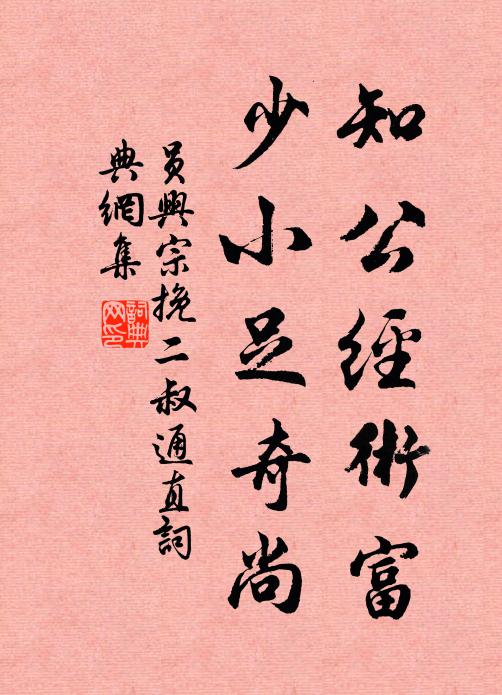 知公經術富
少小足奇尚
員興宗挽二叔通直詞
典網集
詞典
网印